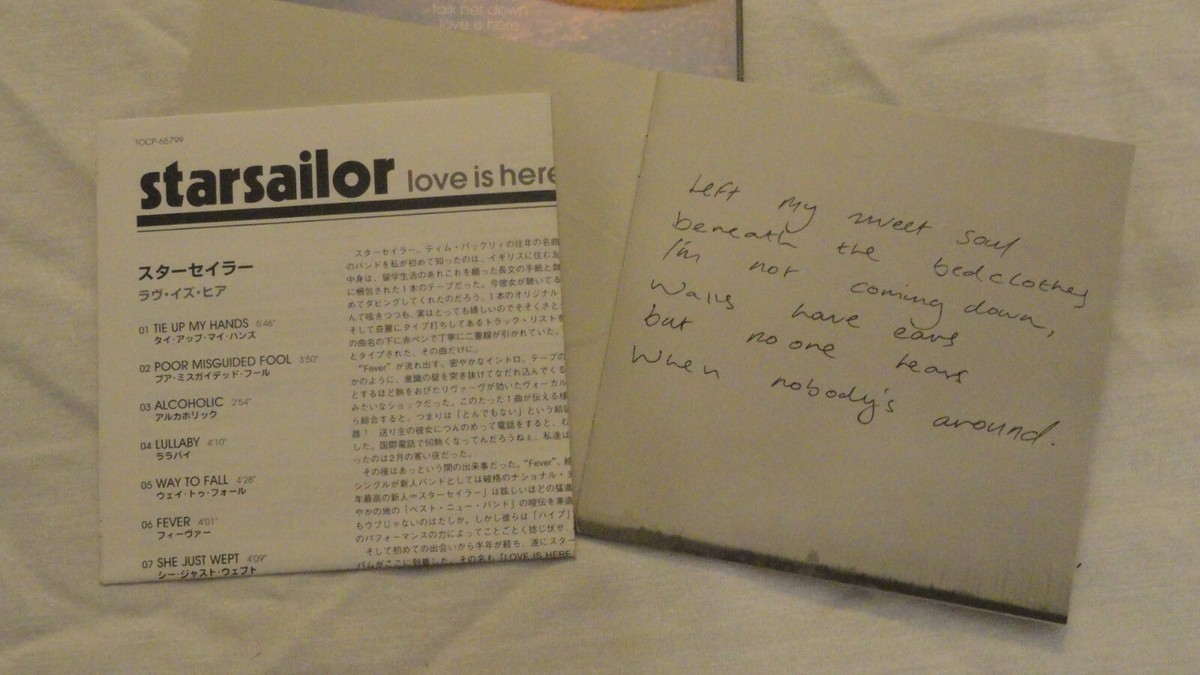 talk her down
love is here
TOCP-65799
starsailor love is here
スターセイラー
ラヴ・イズ・ヒア
01 TIE UP MY HANDS 5'46"
タイ・アップ・マイ・ハンズ
02 POOR MISGUIDED FOOL 3'50"
プア・ミスガイデッド・フール
03 ALCOHOLIC 2'54"
アルカホリック
04 LULLABY 4'10"
ララバイ
05 WAY TO FALL 4'28"
ウェイ・トゥ・フォール
06 FEVER 4'01"
フィーヴァー
07 SHE JUST WEPT 4'09"
シー・ジャスト・ウェプト
スターセイラー。ティム・バックリィの往年の名曲
のバンドを私が初めて知ったのは、イギリスに住む友
中身は、留学生活のあれこれを綴った長文の手紙と
に梱包された1本のテープだった。今彼女が聴いてる
めてダビングしてくれたのだろう、1本のオリジナル
んて呟きつつも、実はとっても嬉しいのでそそくさと
そして奇麗にタイプ打ちしてあるトラック・リストを
の曲名の下に赤ペンで丁寧に二重線が引かれていた。
とタイプされた、その曲だけに。
"Fever"が流れ出す。密やかなイントロ。テープの
かのように、意識の壁を突き抜けてなだれ込んでくる
とするほど熱をおびたリヴァーヴが効いたヴォーカル
みたいなショックだった。このたった1曲が伝える
ら総合すると、つまりは「とんでもない」という結
誰? 送り主の彼女につんのめって電話をすると、む
した。国際電話で何熱くなってんだろうねぇ、私達は
ったのは2月の寒い夜だった。
その後はあっという間の出来事だった。"Fever"、
シングルが新人バンドとしては破格のナショナル・
年最高の新人=スターセイラー」は眩しいほどの猛
やかの地の「ベスト・ニュー・バンド」の喧伝を
もウブじゃないのはたしか。しかし彼らは「ハイプ」
のパフォーマンスの力によってことごとく捻じ伏せ
そして初めての出会いから半年が経ち、遂にスター
バムがここに到着した。その名も『LOVE IS HERE
Left my sweet soul
beneath the bedclothes
I'm not coming down,
Walls have ears
but no one hears
When nobody's around.